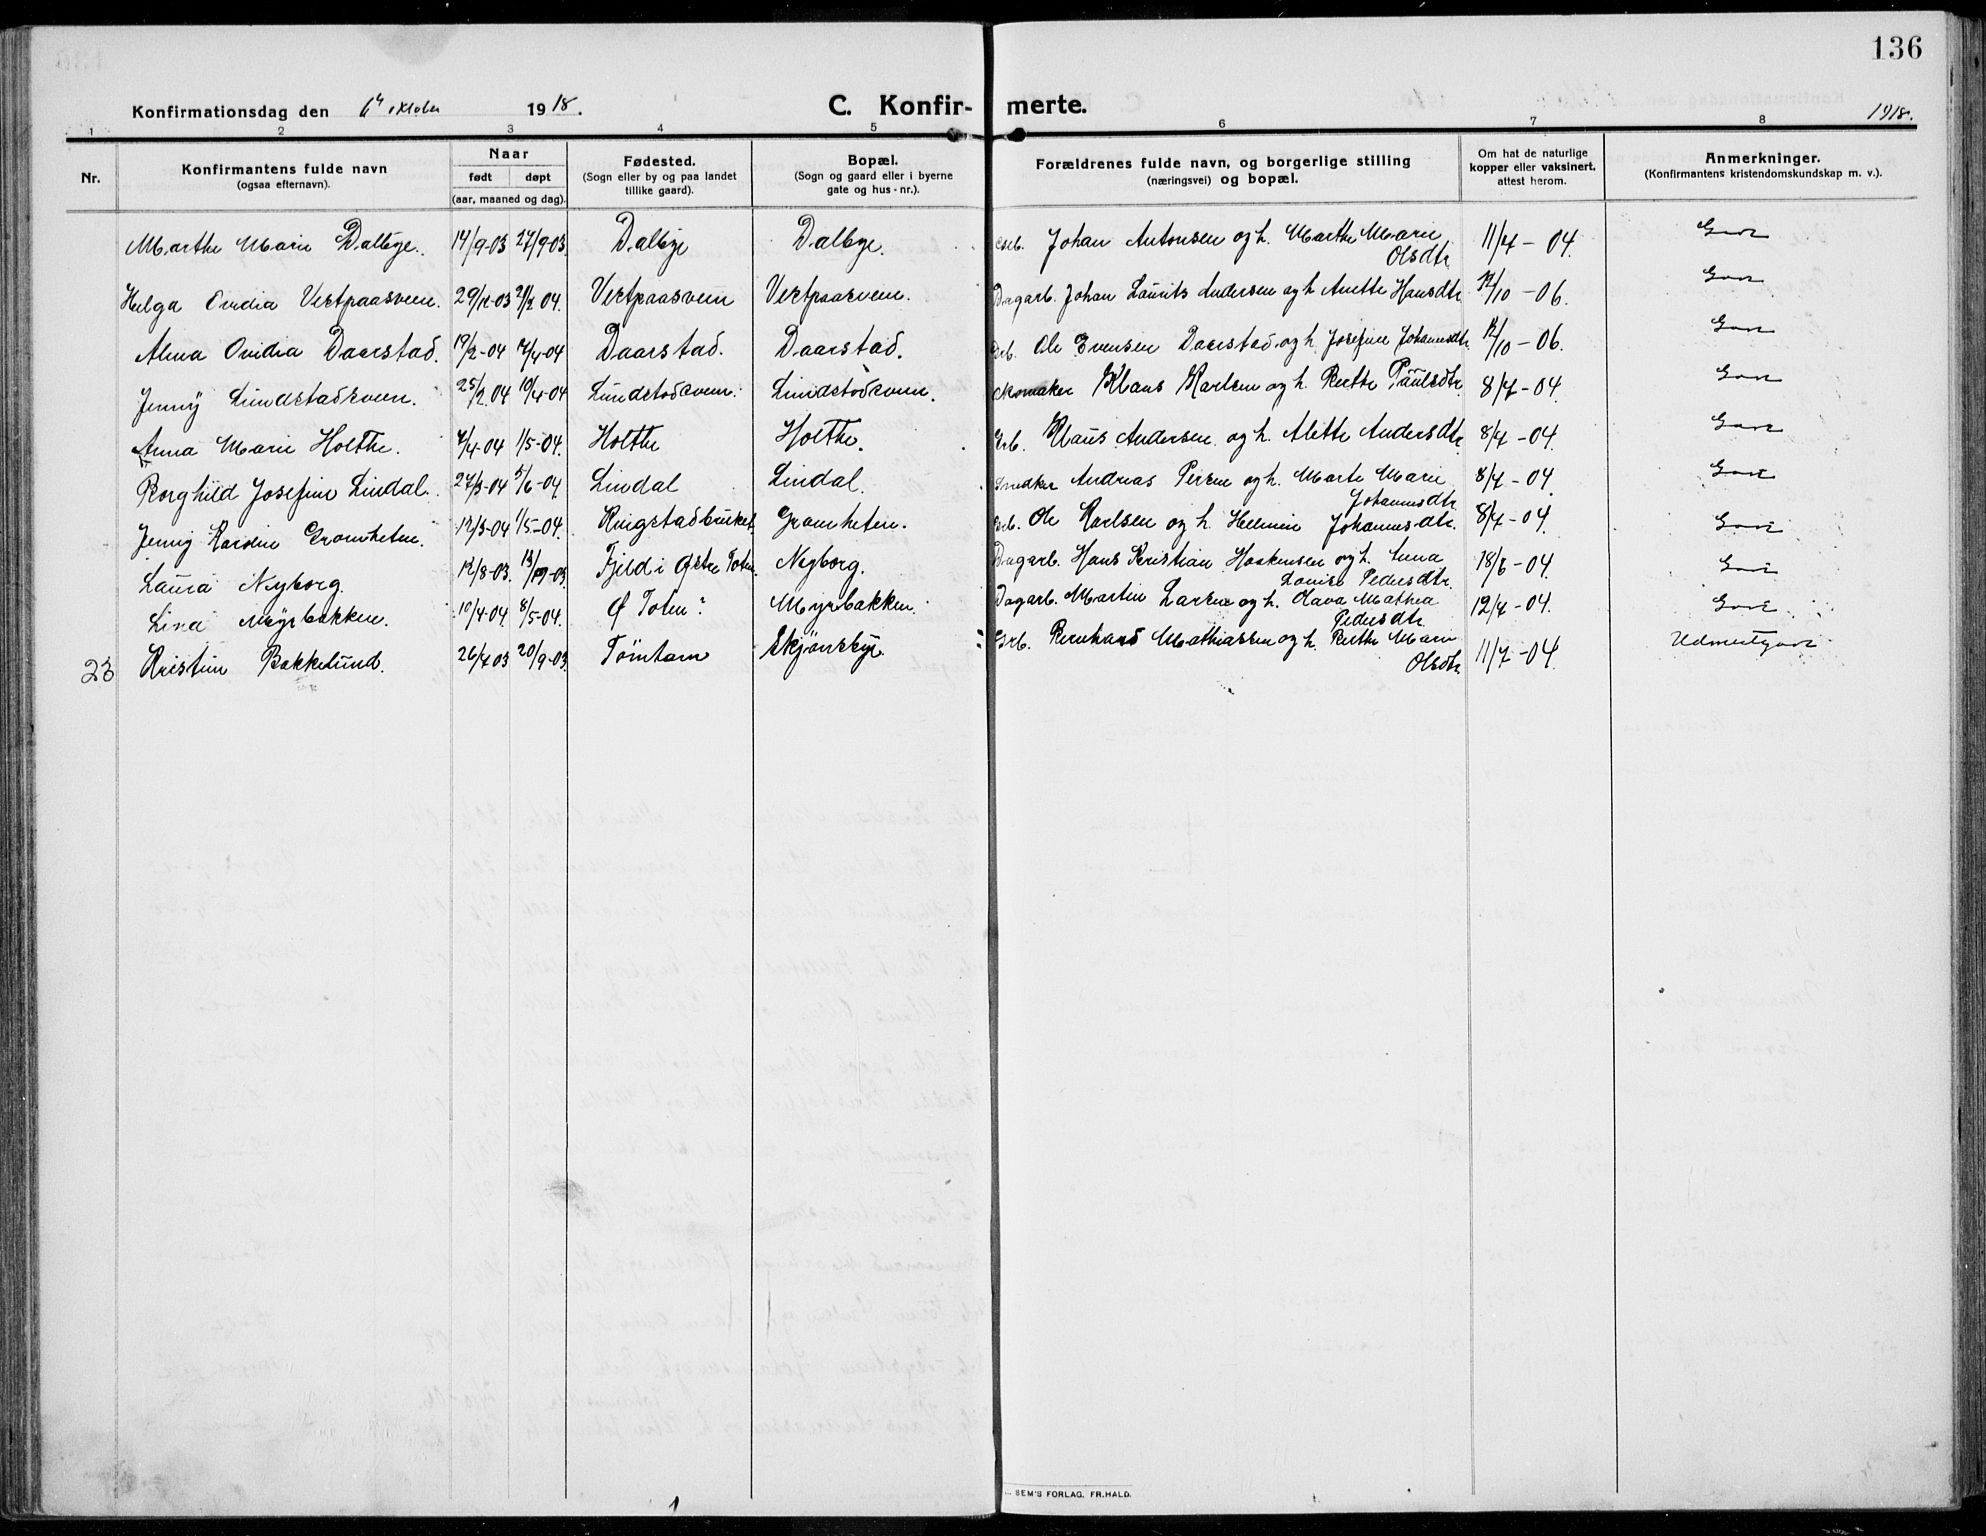 136
Konfirmationsdag den 6te oktober 1918.
C. Konfir- merte.
1918.
1 2 3 4 5 6 7 8
Nr.
Konfirmantens fulde navn
(ogsaa efternavn).
Naar
født døpt
(aar, maaned og dag).
Fødested.
(Sogn eller by og paa landet
tillike gaard).
Bopæl.
(Sogn og gaard eller i byerne
gate og hus-nr.).
Forældrenes fulde navn, og borgerlige stilling
(næringsvei) og bopæl.
Om hat de naturlige
kopper eller vaksinert,
attest herom.
Anmerkninger.
(Konfirmantens kristendomskundskap m. v.).
Marthe Marie Dalbye. 14/9-03 27/9-03. Dalbye Dalbye. Johan Antonsen og h. Marthe Marie 11/4-04. Godt
Olsdtr.
Helga Ovidia Vestpaasveen. 29/12-03 04. Vestpaasveen Vestpaasveen. Dagarb. Johan Laurits Andersen og h. Anette Hansdtr. 12/10-06. Godt
Alma Ovidia Daarstad. 19/2-04 17/4-04 Daarstad. Daarstad. Ole Evensen Daarstad og h. Josefine Johannesdtr. 12/10-06. Godt
Jenny Lundstadsveen. 25/2.04 10/4-04 Lundstadsveen. Lundstadsveen. Skomaker Klaus Karlsen og h. Berthe Paulsdtr. 8/4-04. Godt
Anna Marie Holthe. 4/4-04 1/5-04. Holthe Holthe. Grb. Klaus Andersen og h. Alette Andersdtr. 8/4-04. Godt
Borghild Josefine Lindal. 27/3-04 5/6-04 Lindal Lindal. Snedker Andreas og h. Marte Marie 8/4-04. Godt
Johannesdtr.
Jenny Karoline Gramheten. 12/3-04 1/5-04. Ringstadbruket Gramheten. Ole Karlsen og h. Helmine Johannesdtr. 8/4-04. Godt
Laura Nyborg. 12/8-03. 13/9-03. Fjeld i Østre Toten. Nyborg. Dagarb. Hans Kristian Haakensen og h. Anna 18/6-04. Godt
Louise Pedersdtr.
Lina Myrbakken. 10/4-04. 8/5-04. Ø Toten? Myrbakken. Dagarb. Martin Larsen og h. Olava Mathea 12/4-04. Godt
Pedersdtr.
23 Kristine Bakkelund. 26/7 03 20/9-03. Tømtam Skjønsbye Grb. Bernhard Mathiassen og h. Berthe Marie 11/7-04. Udmerkgodt
Olsdtr.
SEM'S FORLAG, FR.HALD.